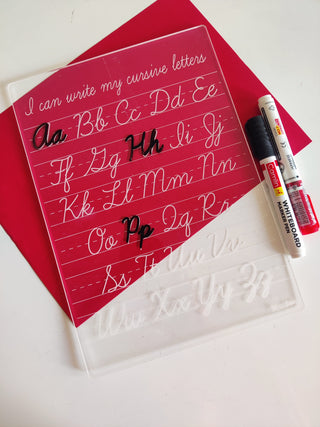 I can write my cursive letters
Aa Bb Cc Dd Ee
Ff Gg Hh Ii Jj
Kk Ll Mm Nn
Oo Pp Qq Rr
Ss Tt Uu Vv
Ww Xx Yy Zz
WHITEBOARD
MARKER PEN